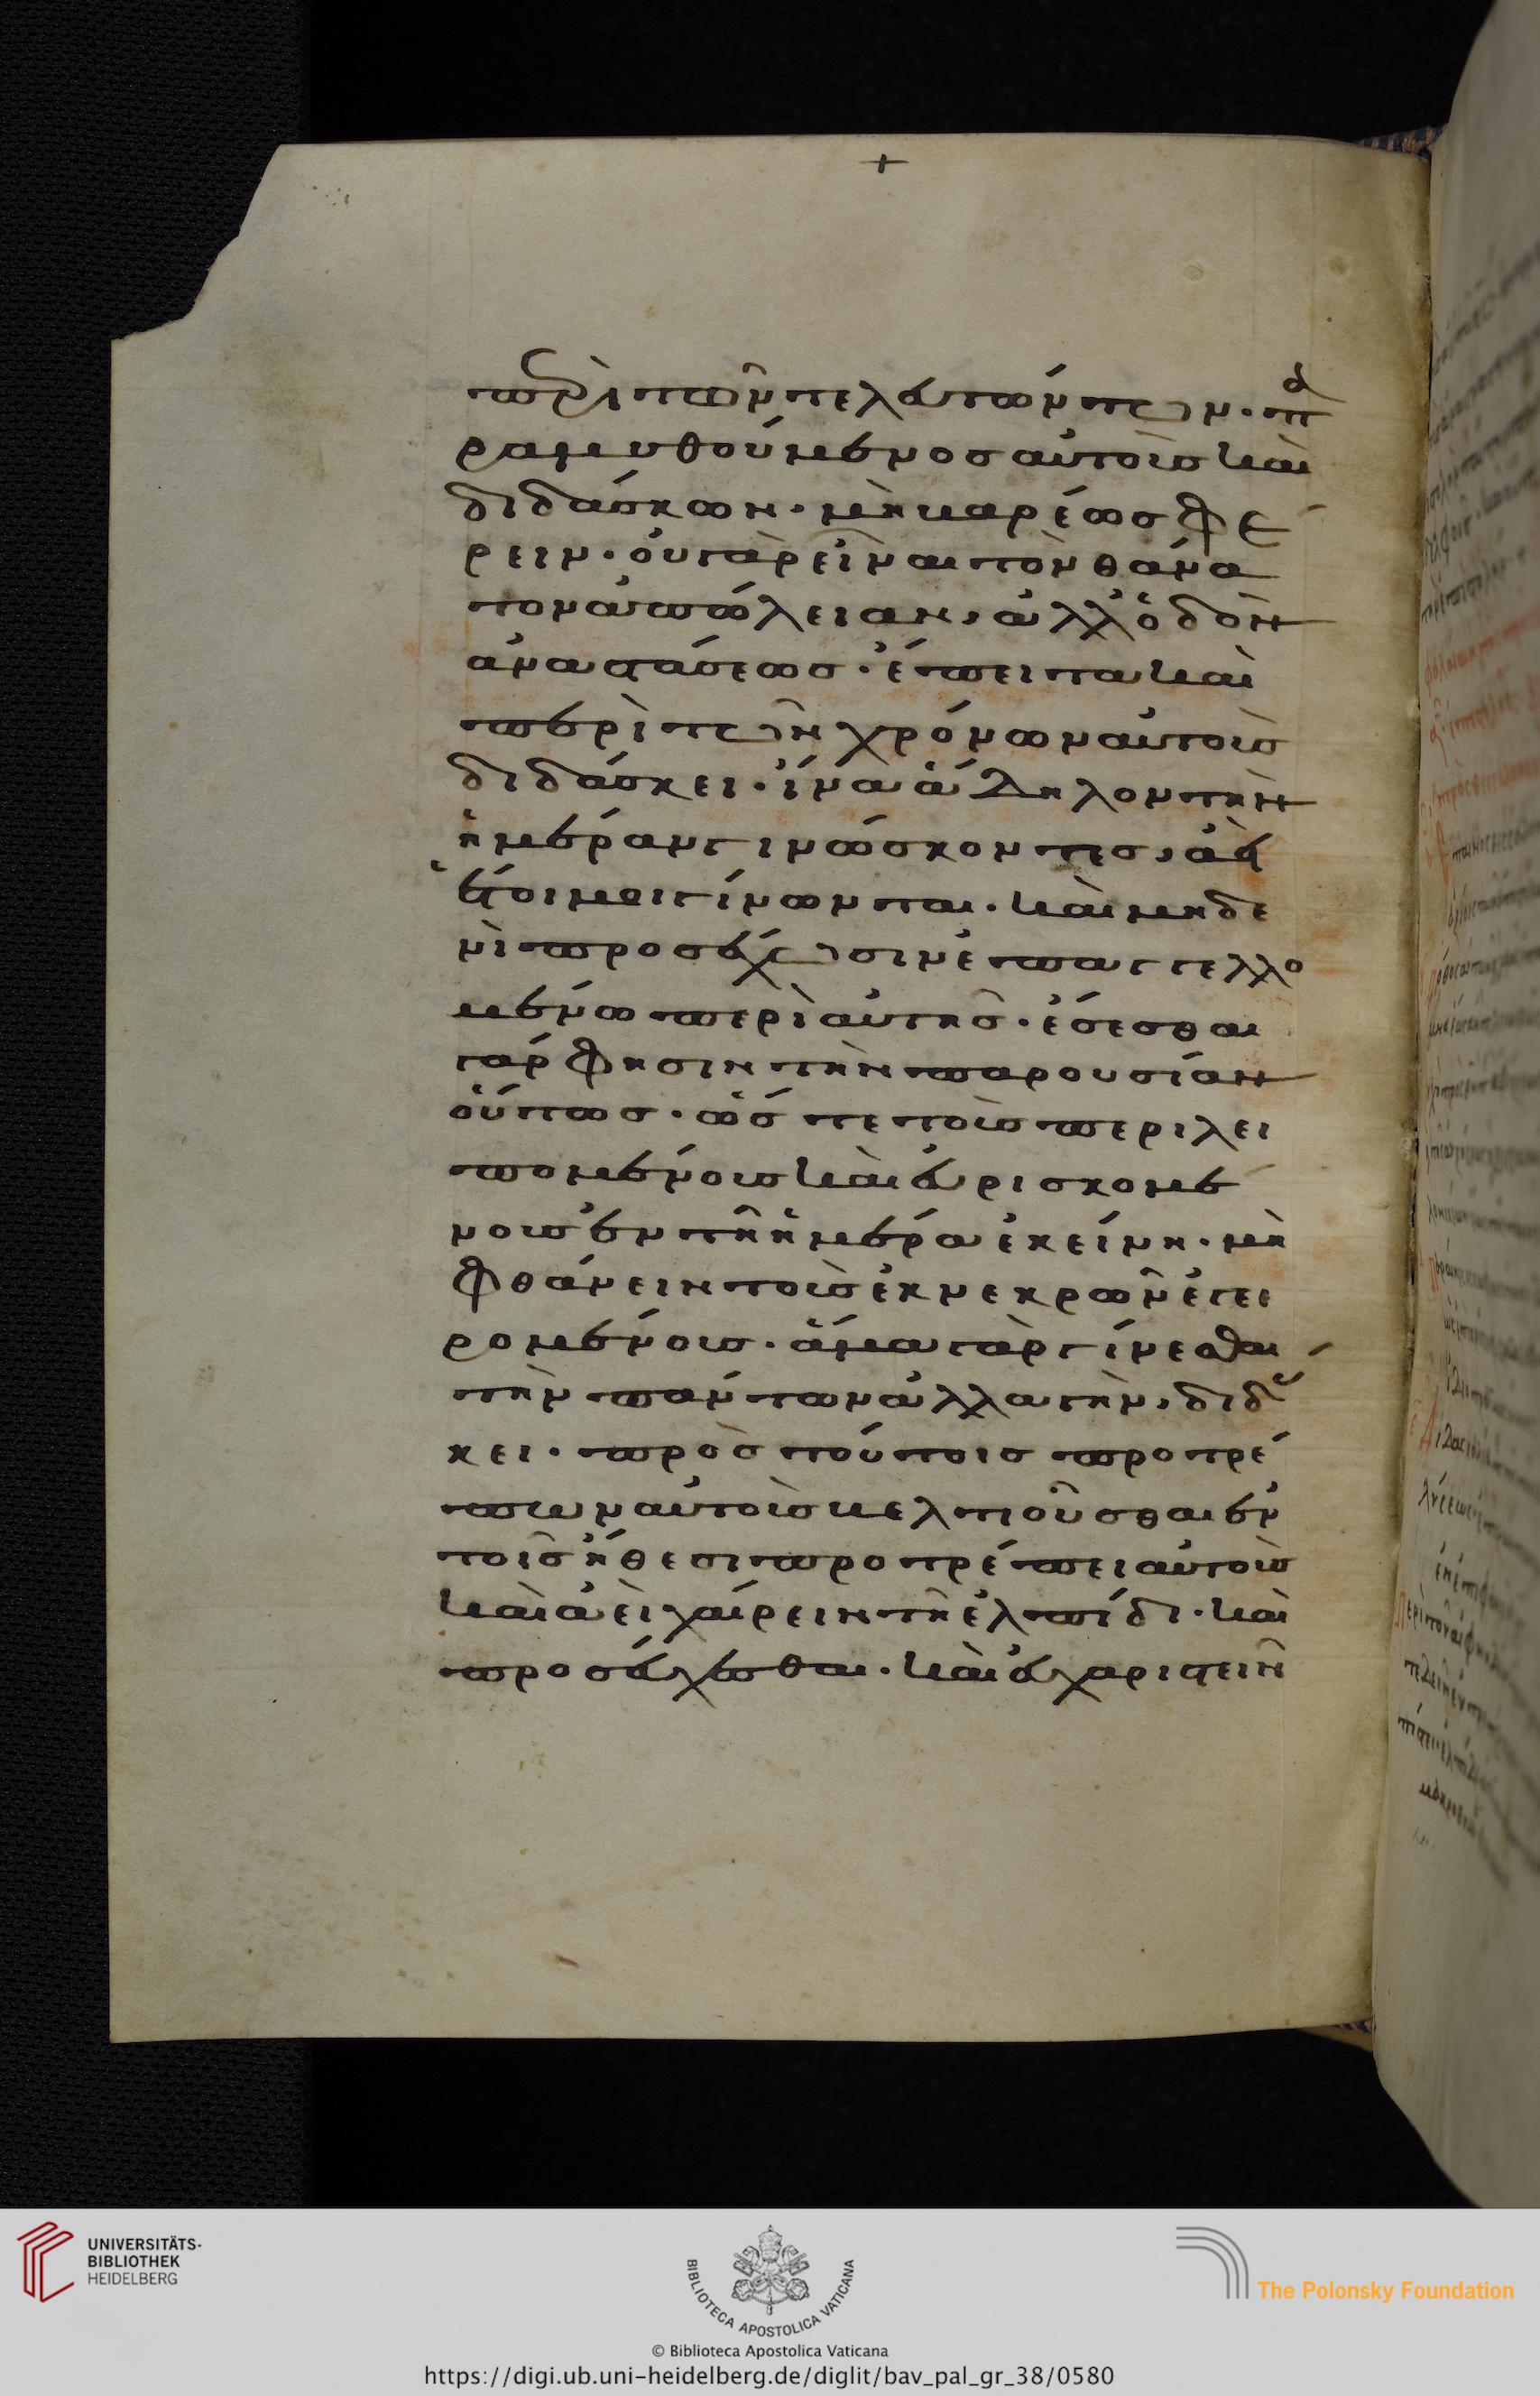 +
περὶ τῶν τελευτώντων· πα
ραμυθούμενος αὐτοὺς καὶ
διδάσκων· μὴ βαρέως φέ
ρειν· οὐ γὰρ εἶναι τὸν θάνα
τον ἀπώλειαν, ἀλλ' ὁδὸν
ἀναστάσεως· ἔπειτα καὶ
περὶ τῶν χρόνων αὐτοὺς
διδάσκει· ἵνα ἄδηλον τὴν
ἡμέραν γινώσκοντες, ἀεὶ
ἕτοιμοι γίνωνται· καὶ μηδε
νὶ προσέχωσιν ἐπαγγελλο
μένω περὶ αὐτῆς· ἔσεσθαι
γάρ φησιν τὴν παρουσίαν
οὕτως· ὥς τε τοὺς περιλει
πομένους καὶ εὑρισκομέ
νους ἐν τῆ ἡμέρα ἐκείνη· μὴ
φθάνειν τοὺς ἐκ νεκρῶν ἐγει
ρομένους· ἅμα γὰρ γίνεσθαι
τὴν πάντων ἀλλαγὴν, διδάσ
κει· πρὸς τούτοις προτρέ
πων αὐτοὺς βελτιοῦσθαι ἐν
τοῖς ἤθεσι προτρέπει αὐτοὺς
καὶ ἀεὶ χαίρειν τῆ ἐλπίδι· καὶ
προσεύχεσθαι· καὶ εὐχαριστεῖν
UNIVERSITÄTS-
BIBLIOTHEK
HEIDELBERG
BIBLIOTECA APOSTOLICA VATICANA
The Polonsky Foundation
© Biblioteca Apostolica Vaticana
https://digi.ub.uni-heidelberg.de/diglit/bav_pal_gr_38/0580